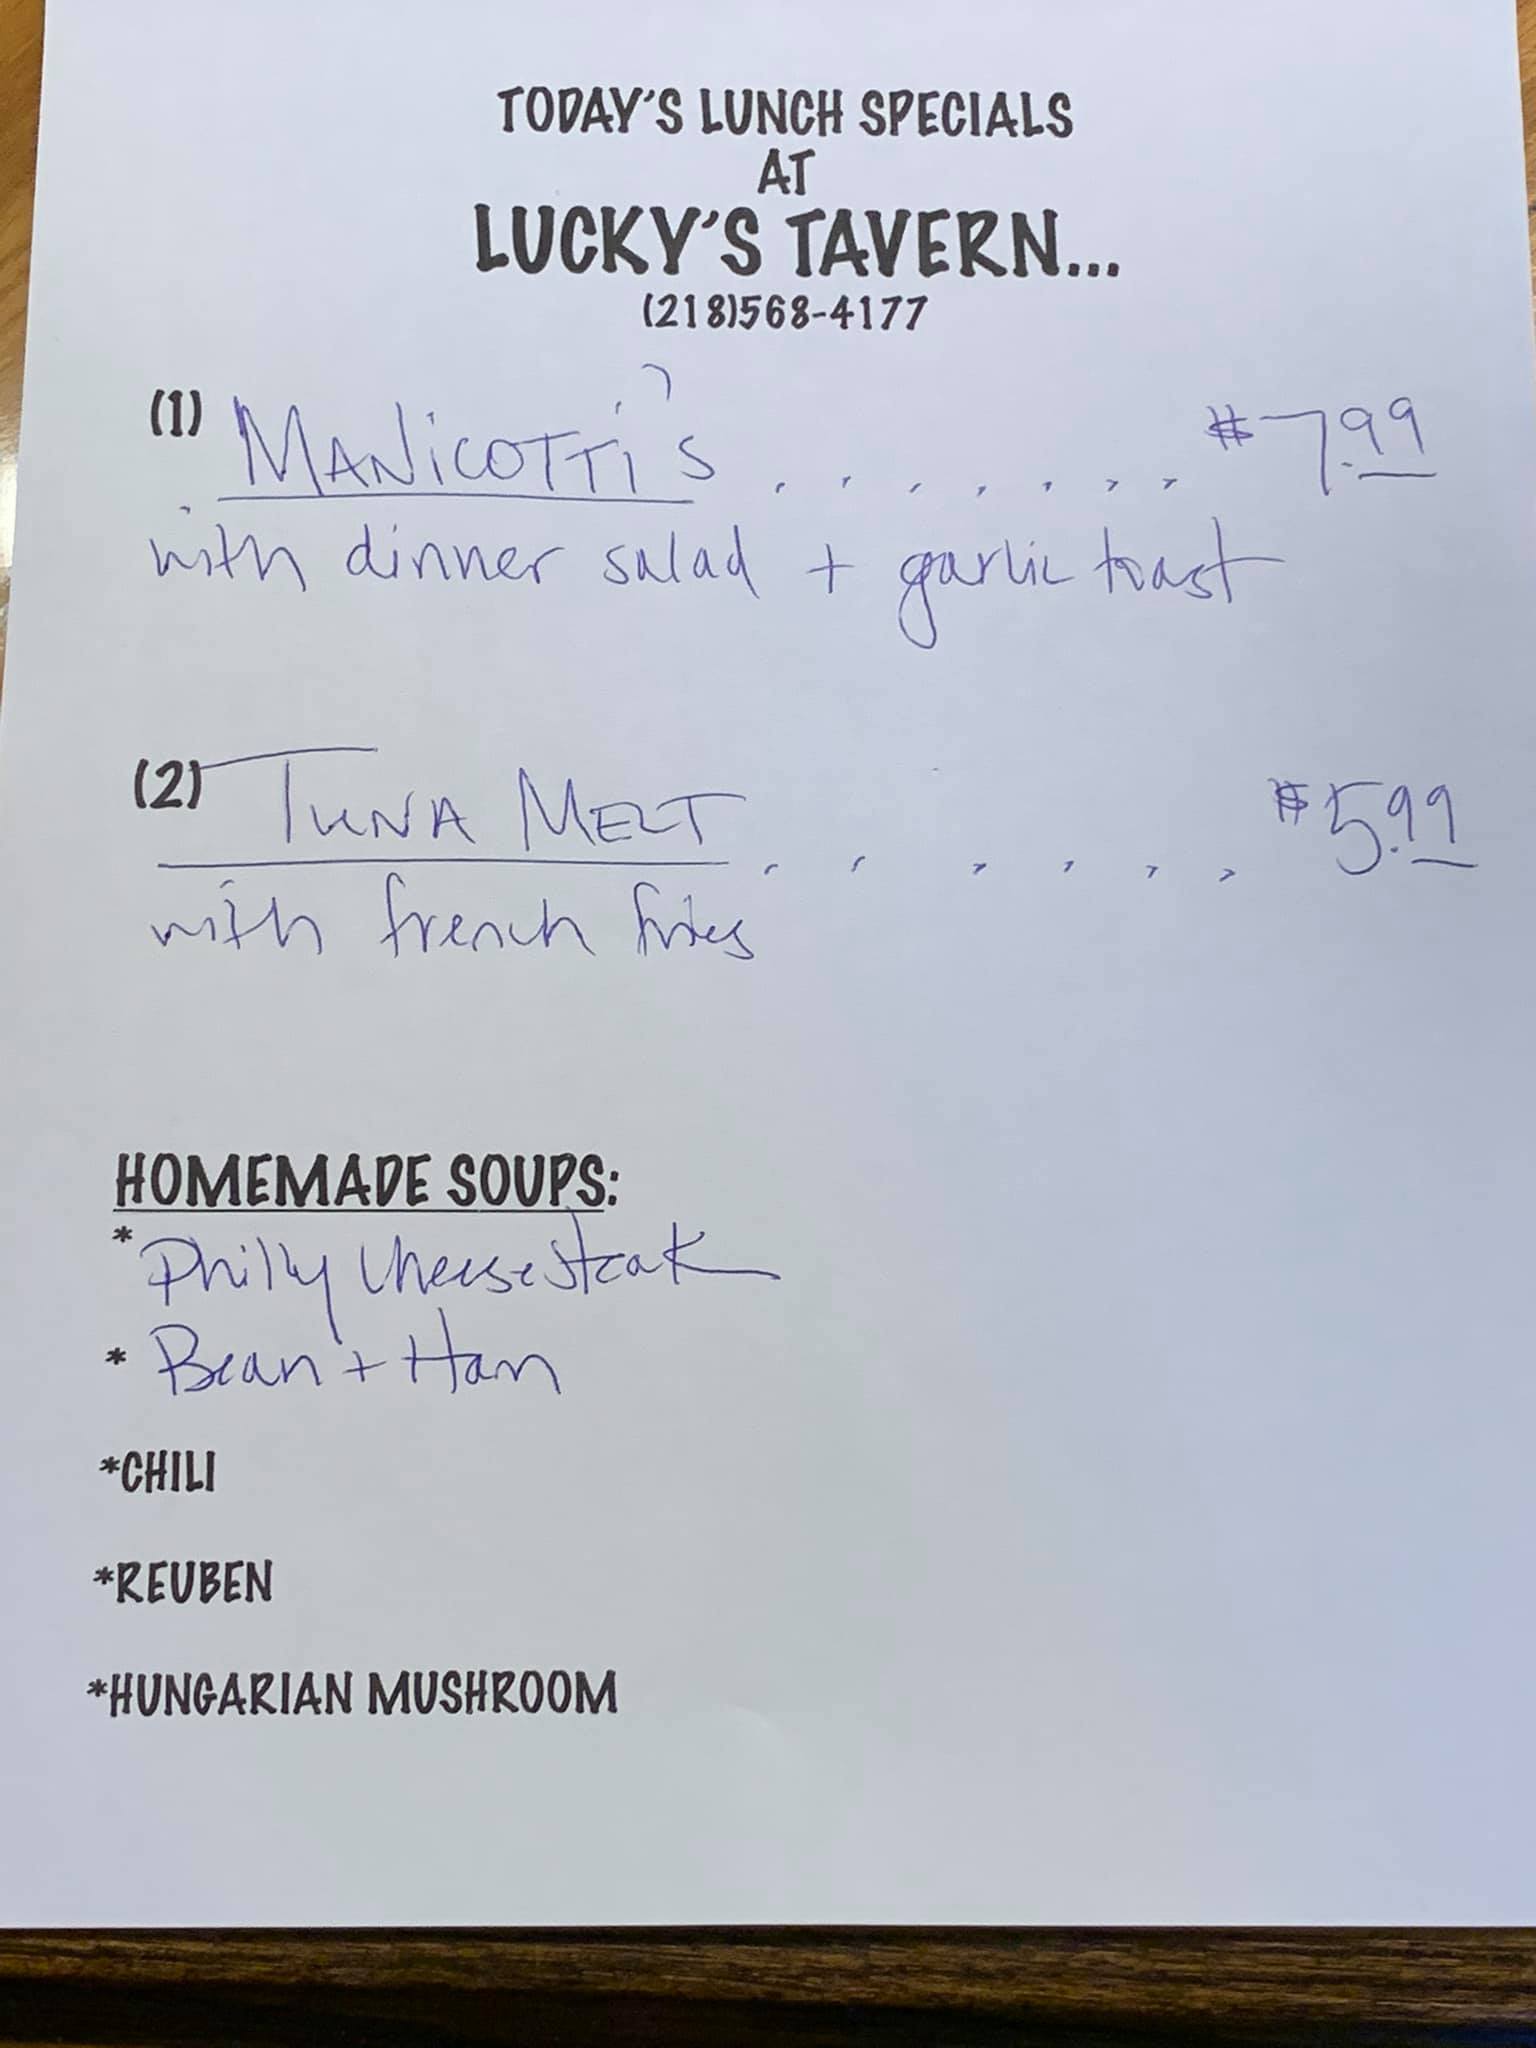 TODAY'S LUNCH SPECIALS
AT
LUCKY'S TAVERN...
(218)568-4177
(1) MANICOTTI'S . . . . . . . $7.99
with dinner salad + garlic toast
(2) TUNA MELT . . . . . . $5.99
with french fries
HOMEMADE SOUPS:
* Philly Cheesesteak
* Bean + Ham
*CHILI
*REUBEN
*HUNGARIAN MUSHROOM